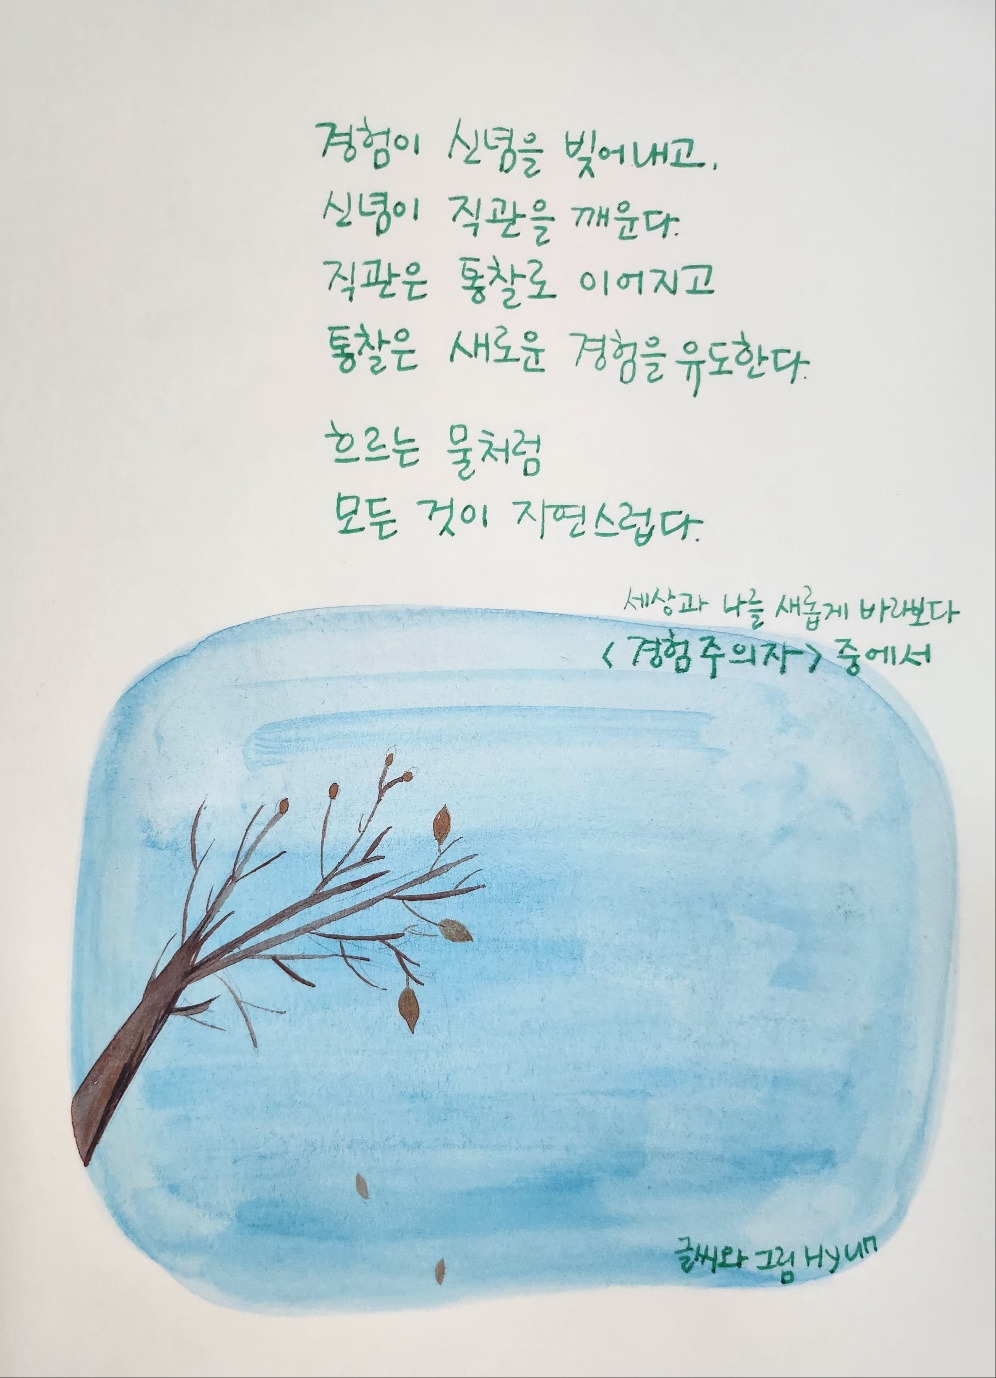 경험이 신념을 빚어내고,
신념이 직관을 깨운다.
직관은 통찰로 이어지고
통찰은 새로운 경험을 유도한다.
흐르는 물처럼
모든 것이 자연스럽다.
세상과 나를 새롭게 바라보다
<경험주의자> 중에서
글씨와 그림 Hyun